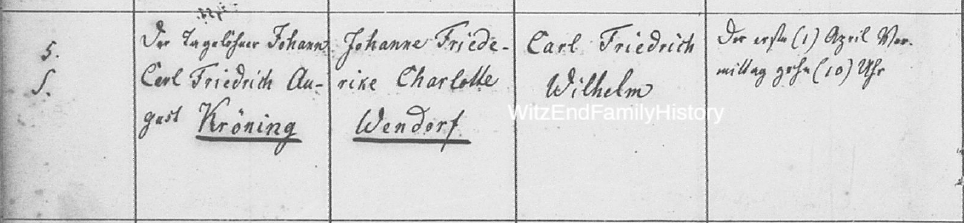 5.
S.
Der Tagelöhner Johann
Carl Friedrich Au-
gust Kröning
Johanne Friede-
rike Charlotte
Wendorf
Carl Friedrich
Wilhelm
Der erste (1) April Vor-
mittag zehn (10) Uhr
WitzEndFamilyHistory